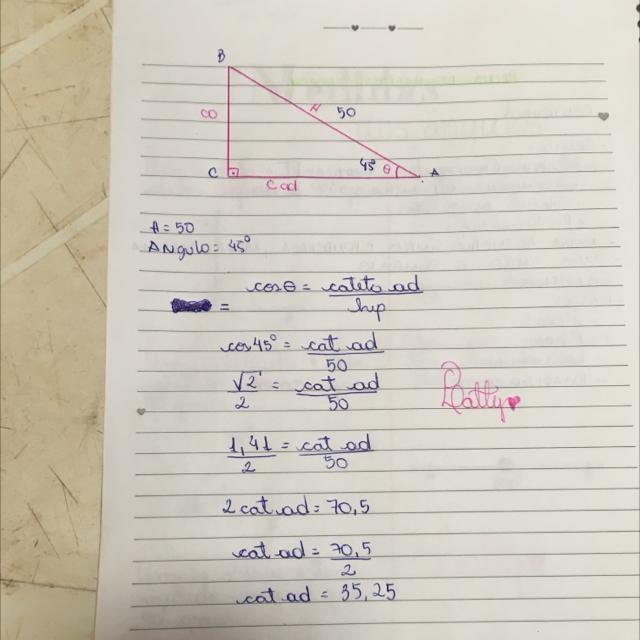 B
CO
H 50
C 45° θ A
C ad
H = 50
ANgulo = 45°
cosθ = cateto ad
=
hip
cos 45° = cat ad
50
√2 = cat ad
2 50
Batty
1,41 = cat ad
2 50
2 cat ad = 70,5
cat ad = 70,5
2
cat ad = 35,25